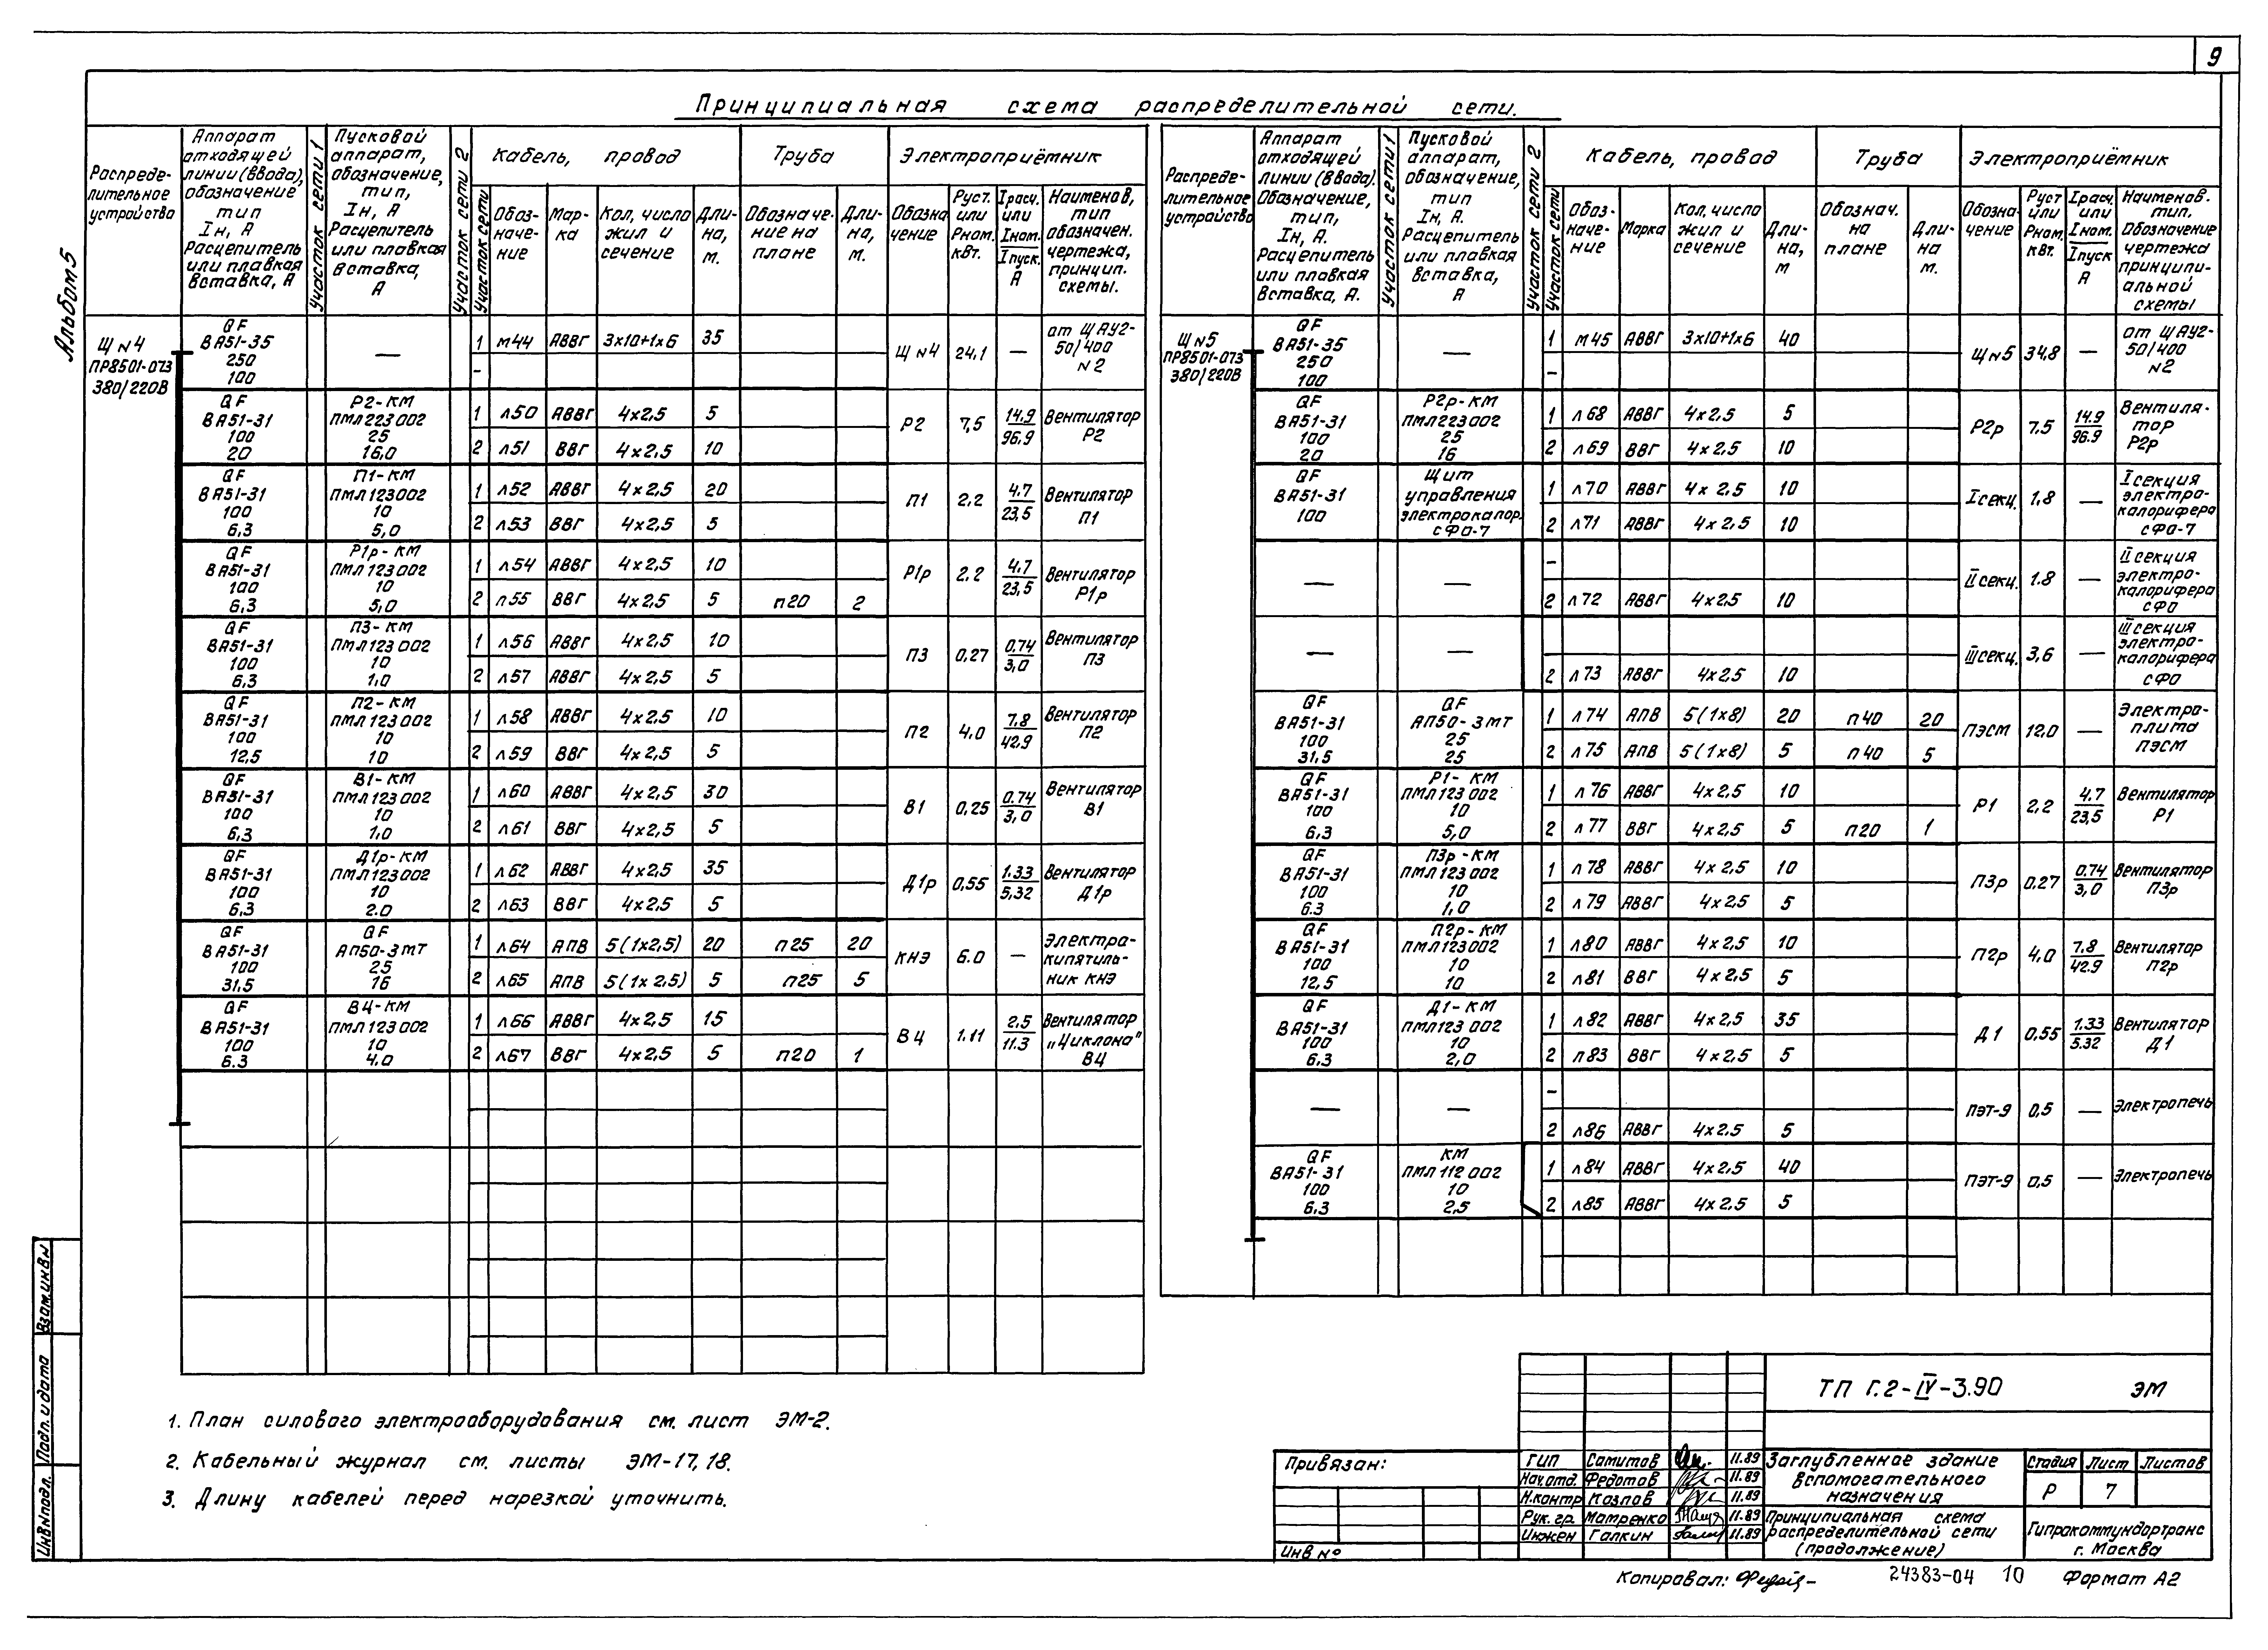 9
Принципиальная схема распределительной сети.
Альбом 5
Распреде-
лительное
устройства
Аппарат
отходящей
линии (ввода),
обозначение
тип
Iн, А
Расцепитель
или плавкая
вставка, А
Участок сети 1
Пусковой
аппарат,
обозначение,
тип,
Iн, А
Расцепитель
или плавкая
вставка,
А
Участок сети 2
Участок сети
Кабель, провод
Обоз-
наче-
ние
Мар-
ка
Кол, число
жил и
сечение
Дли-
на,
м.
Труба
Обозначе-
ние на
плане
Дли-
на,
м.
Электроприёмник
Обозна
чение
Руст.
или
Рном.
кВт.
Iрасч.
или
Iном.
Iпуск.
А
Наименов,
тип
обозначен.
чертежа,
принцип.
схемы.
Щ №4
ПР8501-073
380/220В
QF
ВА51-35
250
100
—
1 м44 АВВГ 3х10+1х6 35
-
Щ №4 24,1 —
от ЩАУ2-
50/400
№2
QF
ВА51-31
100
20
Р2-КМ
ПМЛ223002
25
16,0
1 л50 АВВГ 4х2.5 5
2 л51 ВВГ 4х2,5 10
Р2 7,5 14.9
96.9
Вентилятор
Р2
QF
ВА51-31
100
6,3
П1-КМ
ПМЛ123002
10
5,0
1 л52 АВВГ 4х2.5 20
2 л53 ВВГ 4х2.5 5
П1 2,2 4.7
23,5
Вентилятор
П1
QF
ВА51-31
100
6,3
Р1р-КМ
ПМЛ123002
10
5,0
1 л54 АВВГ 4х2.5 10
2 л55 ВВГ 4х2,5 5 п20 2
Р1р 2,2 4,7
23,5
Вентилятор
Р1р
QF
ВА51-31
100
6,3
П3-КМ
ПМЛ123002
10
1,0
1 л56 АВВГ 4х2,5 10
2 л57 АВВГ 4х2,5 5
П3 0,27 0,74
3,0
Вентилятор
П3
QF
ВА51-31
100
12,5
П2-КМ
ПМЛ123002
10
10
1 л58 АВВГ 4х2.5 10
2 л59 ВВГ 4х2,5 5
П2 4,0 7,8
42.9
Вентилятор
П2
QF
ВА51-31
100
6,3
В1-КМ
ПМЛ123002
10
1,0
1 л60 АВВГ 4х2,5 30
2 л61 ВВГ 4х2,5 5
В1 0,25 0.74
3,0
Вентилятор
В1
QF
ВА51-31
100
6,3
Д1р-КМ
ПМЛ123002
10
2.0
1 л62 АВВГ 4х2,5 35
2 л63 ВВГ 4х2,5 5
Д1р 0,55 1.33
5,32
Вентилятор
Д1р
QF
ВА51-31
100
31,5
QF
АП50-3МТ
25
16
1 л64 АПВ 5(1х2,5) 20 п25 20
2 л65 АПВ 5(1х2.5) 5 п25 5
КНЭ 6.0 —
Электро-
кипятиль-
ник КНЭ
QF
ВА51-31
100
6.3
В4-КМ
ПМЛ123002
10
4,0
1 л66 АВВГ 4х2,5 15
2 л67 ВВГ 4х2.5 5 п20 1
В4 1.11 2,5
11.3
Вентилятор
„Циклона"
В4
Распреде-
лительное
устройство
Аппарат
отходящей
линии (ввода).
Обозначение,
тип,
Iн, А.
Расцепитель
или плавкая
вставка, А.
Участок сети 1
Пусковой
аппарат,
обозначение,
тип
Iн, А.
Расцепитель
или плавкая
вставка,
А
Участок сети 2
Участок сети
Кабель, провод
Обоз-
наче-
ние
Марка
Кол, число
жил и
сечение
Дли-
на,
м
Труба
Обознач.
на
плане
Дли-
на
м.
Электроприёмник
Обозна-
чение
Руст
или
Рном.
кВт.
Iрасч.
или
Iном.
Iпуск
А
Наименов.
тип.
Обозначение
чертежа
принципи-
альной
схемы
Щ №5
ПР8501-073
380/220В
QF
ВА51-35
250
100
—
1 м45 АВВГ 3х10+1х6 40
-
Щ №5 34,8 —
от ЩАУ2-
50/400
№2
QF
ВА51-31
100
20
Р2р-КМ
ПМЛ223002
25
16
1 л68 АВВГ 4х2,5 5
2 л69 ВВГ 4х2,5 10
Р2р 7.5 14.9
96.9
Вентиля-
тор
Р2р
QF
ВА51-31
100
Щит
управления
электрокалор.
СФО-7
1 л70 АВВГ 4х2.5 10
2 л71 АВВГ 4х2,5 10
I секц. 1,8 —
I секция
электро-
калорифера
СФО-7
— —
-
2 л72 АВВГ 4х2,5 10
II секц. 1.8 —
II секция
электро-
калорифера
СФО
— —
2 л73 АВВГ 4х2,5 10
III секц. 3,6 —
III секция
электро-
калорифера
СФО
QF
ВА51-31
100
31,5
QF
АП50-3МТ
25
25
1 л74 АПВ 5(1х8) 20 п40 20
2 л75 АПВ 5(1х8) 5 п40 5
ПЭСМ 12.0 —
Электро-
плита
ПЭСМ
QF
ВА51-31
100
6,3
Р1-КМ
ПМЛ123002
10
5,0
1 л76 АВВГ 4х2,5 10
2 л77 ВВГ 4х2,5 5 п20 1
Р1 2,2 4,7
23,5
Вентилятор
Р1
QF
ВА51-31
100
6.3
П3р-КМ
ПМЛ123002
10
1,0
1 л78 АВВГ 4х2,5 10
2 л79 АВВГ 4х2,5 5
П3р 0.27 0.74
3,0
Вентилятор
П3р
QF
ВА51-31
100
12,5
П2р-КМ
ПМЛ123002
10
10
1 л80 АВВГ 4х2,5 10
2 л81 ВВГ 4х2,5 5
П2р 4,0 7,8
42.9
Вентилятор
П2р
QF
ВА51-31
100
6,3
Д1-КМ
ПМЛ123002
10
2,0
1 л82 АВВГ 4х2,5 35
2 л83 ВВГ 4х2,5 5
Д1 0,55 1.33
5.32
Вентилятор
Д1
— —
-
2 л86 АВВГ 4х2,5 5
ПЭТ-9 0,5 — Электропечь
QF
ВА51-31
100
6,3
КМ
ПМЛ112002
10
2,5
1 л84 АВВГ 4х2,5 40
2 л85 АВВГ 4х2,5 5
ПЭТ-9 0,5 — Электропечь
1. План силового электрооборудования см. лист ЭМ-2.
2. Кабельный журнал см. листы ЭМ-17,18.
3. Длину кабелей перед нарезкой уточнить.
Взам.инв№
Подп. и дата
Инв№подл.
Привязан:
Инв №
ТП Г.2-IV-3.90 ЭМ
ГИП Сатитов 11.89
Нач.отд. Федотов 11.89
Н.контр Козлов 11.89
Рук.гр. Матренко 11.89
Инжен Галкин 11.89
Заглубленное здание
вспомогательного
назначения
Стадия Лист Листов
Р 7
Принципиальная схема
распределительной сети
(продолжение)
Гипрокоммундортранс
г. Москва
Копировал:
24383-04 10 Формат А2